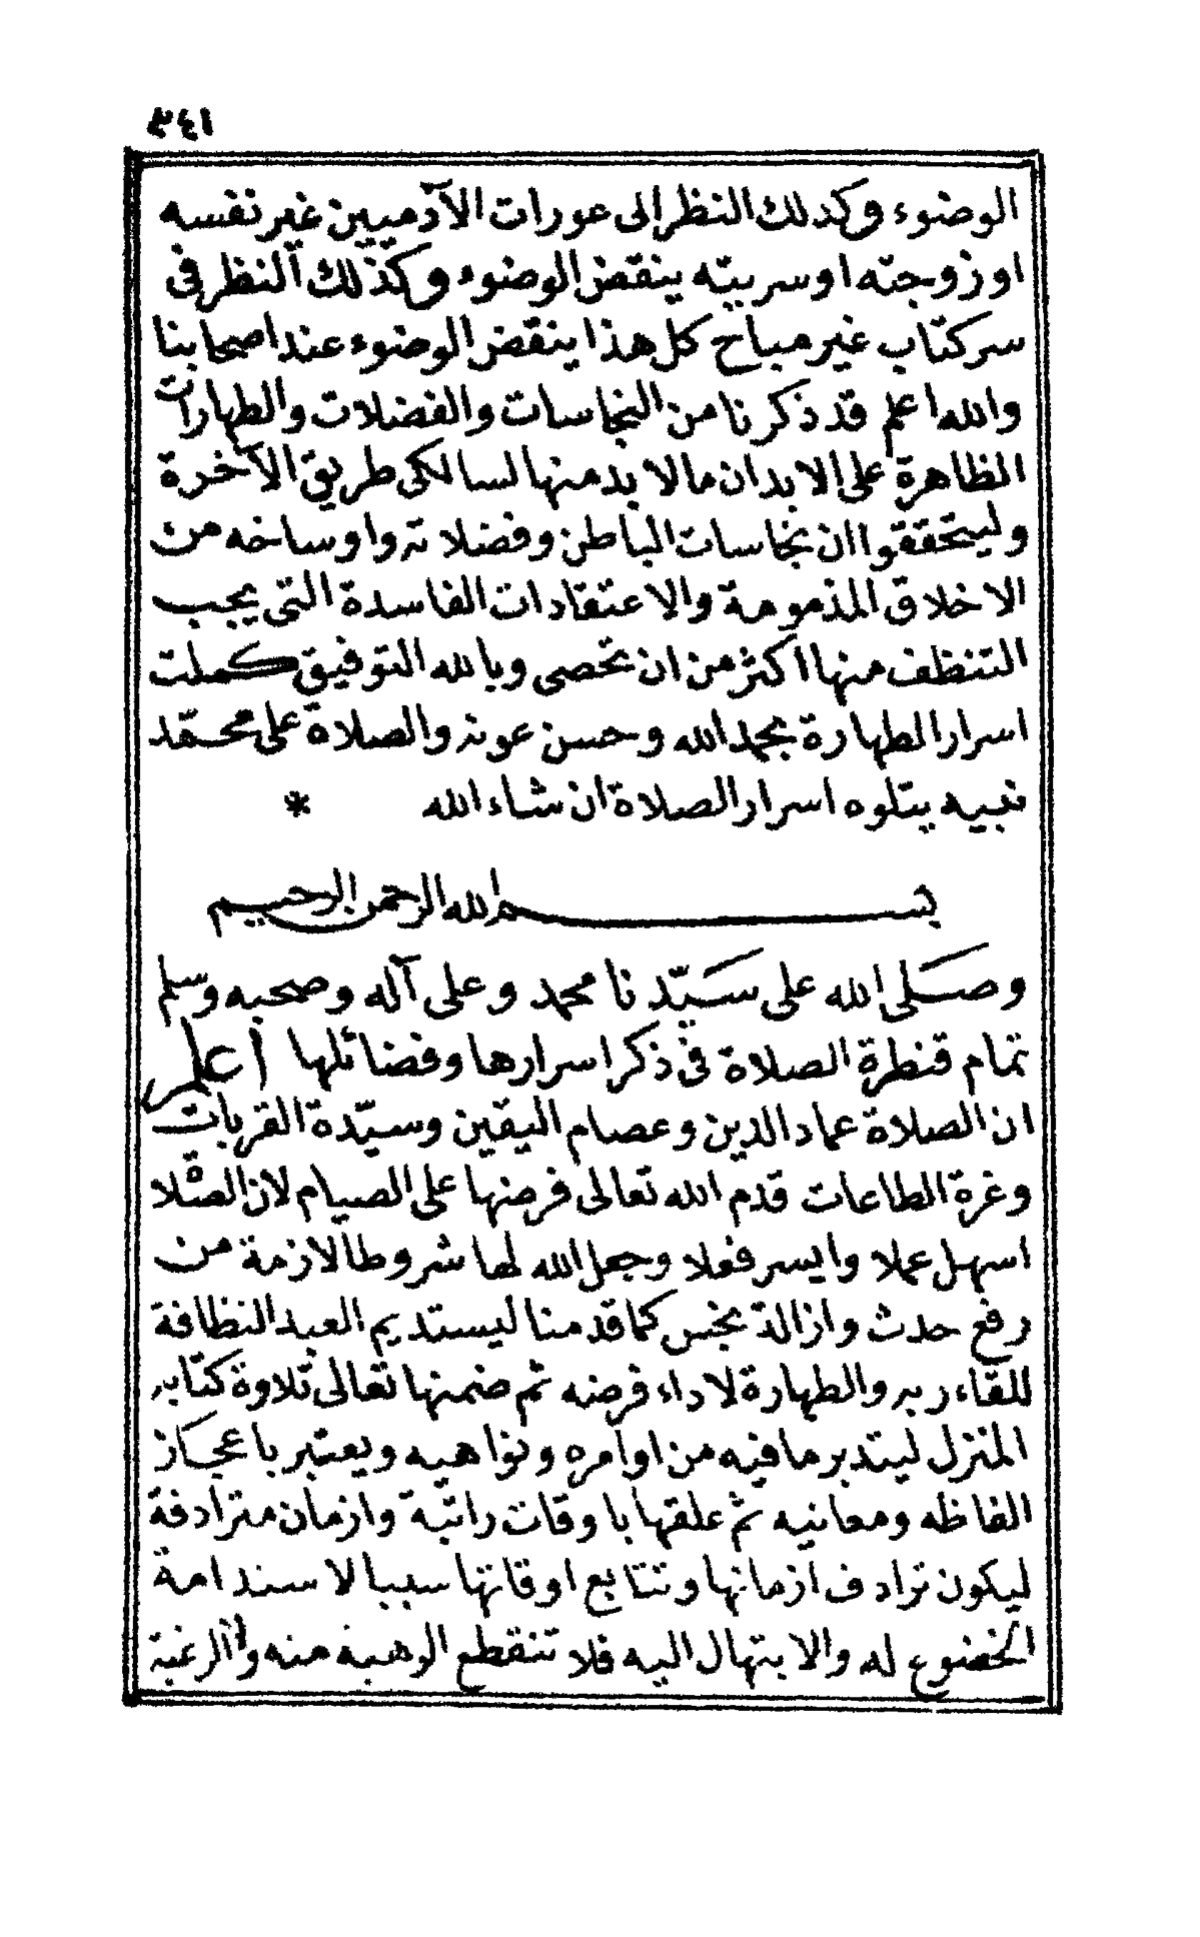 ٣٤١
الوضوء وكذلك النظر الى عورات الآدميين غير نفسه
او زوجته او سريته ينقض الوضوء وكذلك النظر في
سر كتاب غير مباح كل هذا ينقض الوضوء عند اصحابنا
والله اعلم قد ذكرنا من النجاسات والفضلات والطهارات
الظاهرة على الابدان ما لا بد منها لسالكى طريق الآخرة
وليتحققوا ان نجاسات الباطن وفضلاته واوساخه من
الاخلاق المذمومة والاعتقادات الفاسدة التى يجب
التنظف منها اكثر من ان تحصى وبالله التوفيق كملت
اسرار الطهارة بحمد الله وحسن عونه والصلاة على محمّد
نبيه يتلوه اسرار الصلاة ان شاء الله *
بسم الله الرحمن الرحيم
وصلى الله على سيّدنا محمد وعلى آله وصحبه وسلم
تمام قنطرة الصلاة في ذكر اسرارها وفضائلها اعلم
ان الصلاة عماد الدين وعصام اليقين وسيّدة القربات
وغرة الطاعات قدم الله تعالى فرضها على الصيام لان الصلاة
اسهل عملا وايسر فعلا وجعل الله لها شروطا لازمة من
رفع حدث وازالة نجس كما قدمنا ليستديم العبد النظافة
للقاء ربه والطهارة لاداء فرضه ثم ضمنها تعالى تلاوة كتابه
المنزل ليتدبر ما فيه من اوامره ونواهيه ويعتبر باعجاز
الفاظه ومعانيه ثم علقها باوقات راتبة وازمان مترادفة
ليكون ترادف ازمانها وتتابع اوقاتها سببا لاستدامة
الخضوع له والابتهال اليه فلا تنقطع الرهبة منه والرغبة